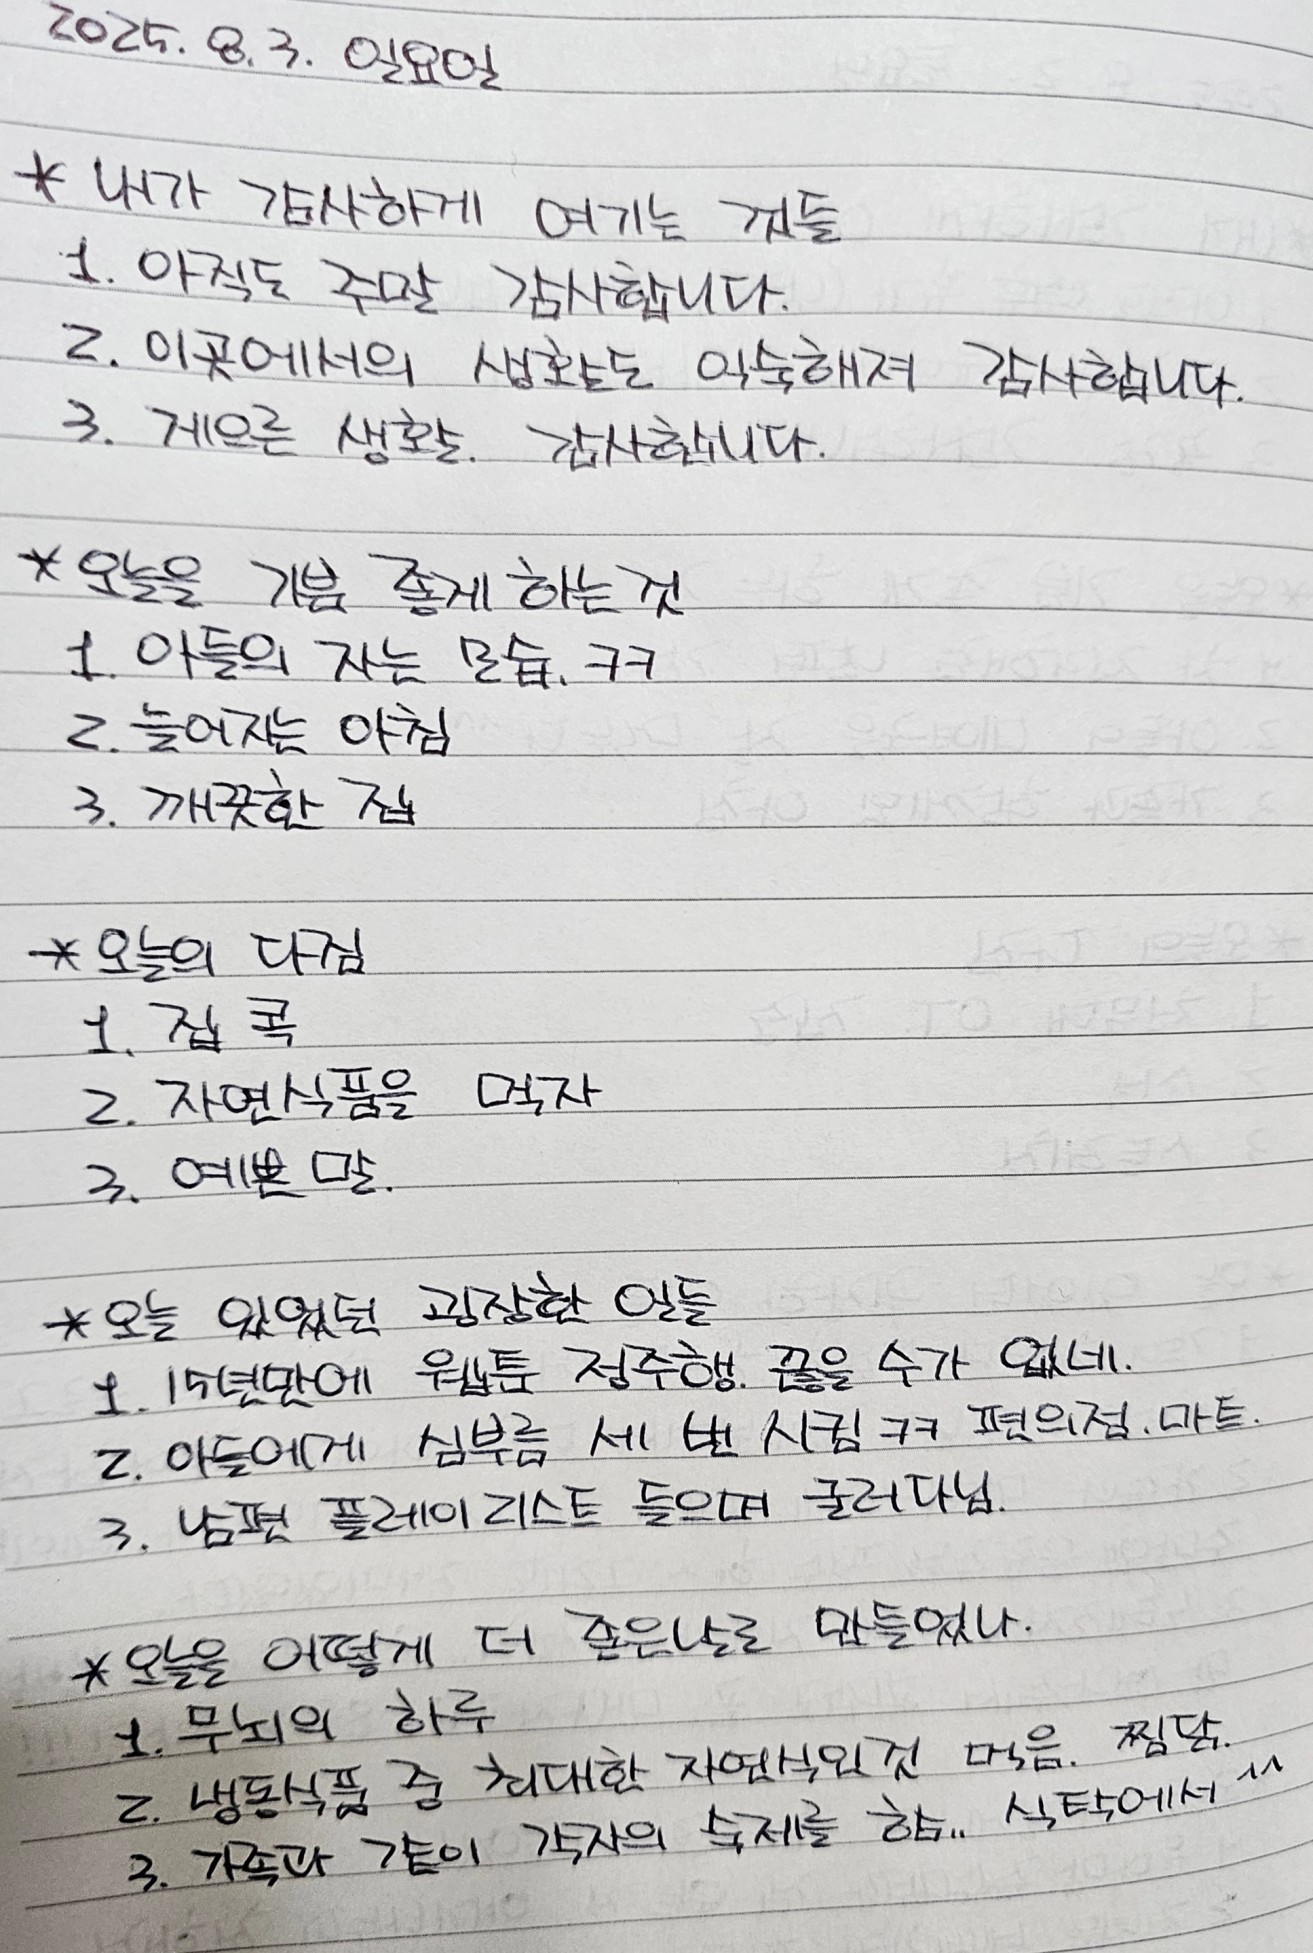 2025. 8. 3. 일요일
* 내가 감사하게 여기는 것들
1. 아직도 주말 감사합니다.
2. 이곳에서의 생활도 익숙해져 감사합니다.
3. 게으른 생활. 감사합니다.
* 오늘을 기분 좋게 하는 것
1. 아들의 자는 모습. ㅋㅋ
2. 늘어지는 아침
3. 깨끗한 집
* 오늘의 다짐
1. 집 콕
2. 자연식품을 먹자
3. 예쁜 말.
* 오늘 있었던 굉장한 일들
1. 15년만에 웹툰 정주행. 끊을 수가 없네.
2. 아들에게 심부름 세 번 시킴 ㅋㅋ 편의점. 마트.
3. 남편 플레이리스트 들으며 굴러다님.
* 오늘을 어떻게 더 좋은날로 만들었나.
1. 무뇌의 하루
2. 냉동식품 중 최대한 자연식인것 먹음. 찜닭.
3. 가족과 같이 각자의 숙제를 함.. 식탁에서 ^^